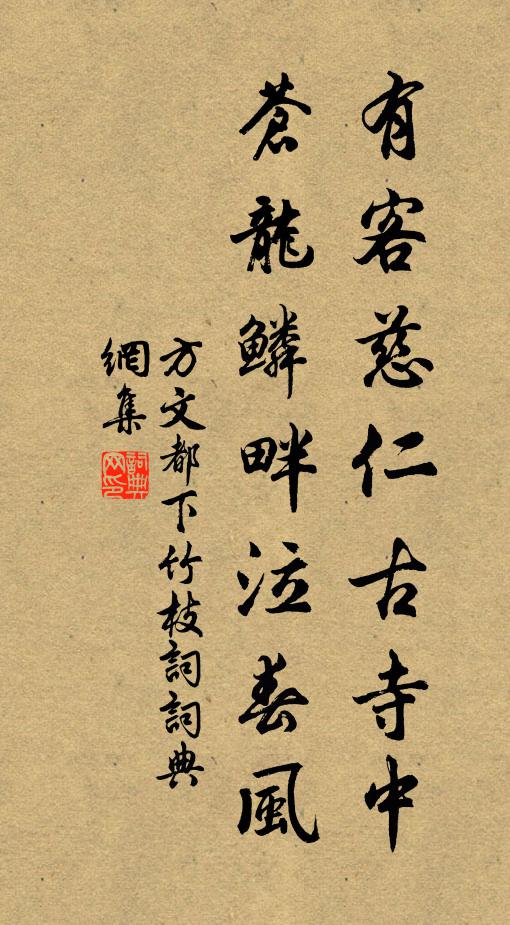 有客慈仁古寺中
蒼龍鱗畔泣春風
方文都下竹枝詞詞典
網集
詞典
网印